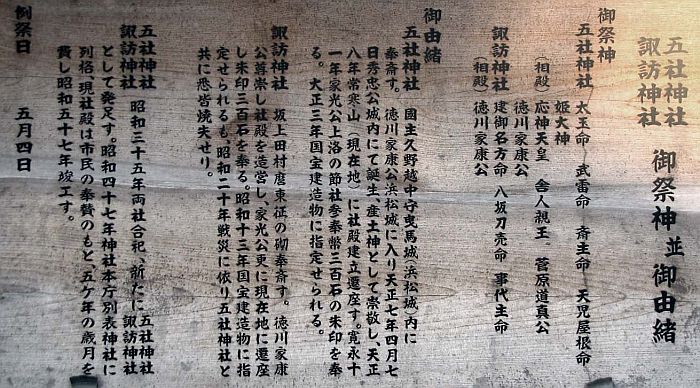 五社神社
諏訪神社 御祭神並御由緒
御祭神
五社神社 太玉命 武雷命 斎主命 天児屋根命
姫大神
(相殿) 応神天皇 舎人親王 菅原道真公
徳川家康公
諏訪神社 建御名方命 八坂刀売命 事代主命
(相殿) 徳川家康公
御由緒
五社神社 國主久野越中守曳馬城(浜松城)内に
奉斎す。徳川家康公浜松城に入り天正七年四月七
日秀忠公城内にて誕生、産土神として崇敬し、天正
八年常寒山(現在地)に社殿建立遷座す。寛永十
一年家光公上洛の節社参奉幣三百石の朱印を奉
る。大正三年国宝建造物に指定せられる。
諏訪神社 坂上田村麿東征の砌奉斎す。徳川家康
公尊崇し社殿を造営し、家光公更に現在地に遷座
し朱印三百石を奉る。昭和十三年国宝建造物に指
定せられるも、昭和二十年戦災に依り五社神社と
共に悉皆焼失せり。
五社神社
諏訪神社 昭和三十五年両社合祀、新たに 五社神社
諏訪神社
として発足す。昭和四十七年神社本庁別表神社に
列格、現社殿は市民の奉賛のもと、五ケ年の歳月を
費し昭和五十七年竣工す。
例祭日 五月四日